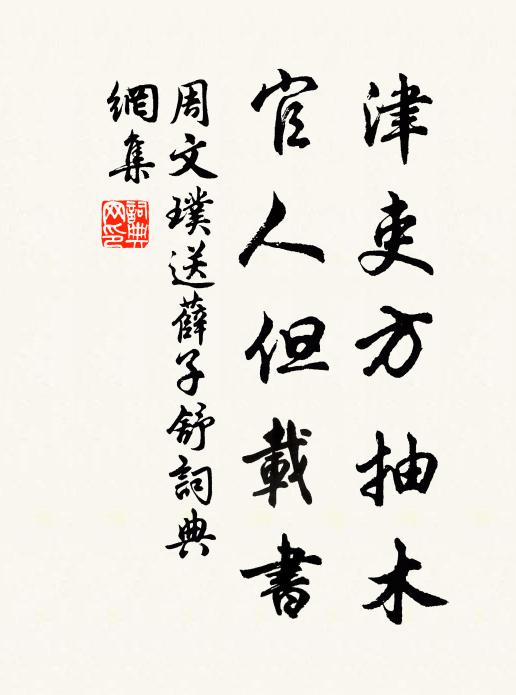 津吏方抽木
官人但載書
周文璞送薛子舒詞典
網集
詞典
网印